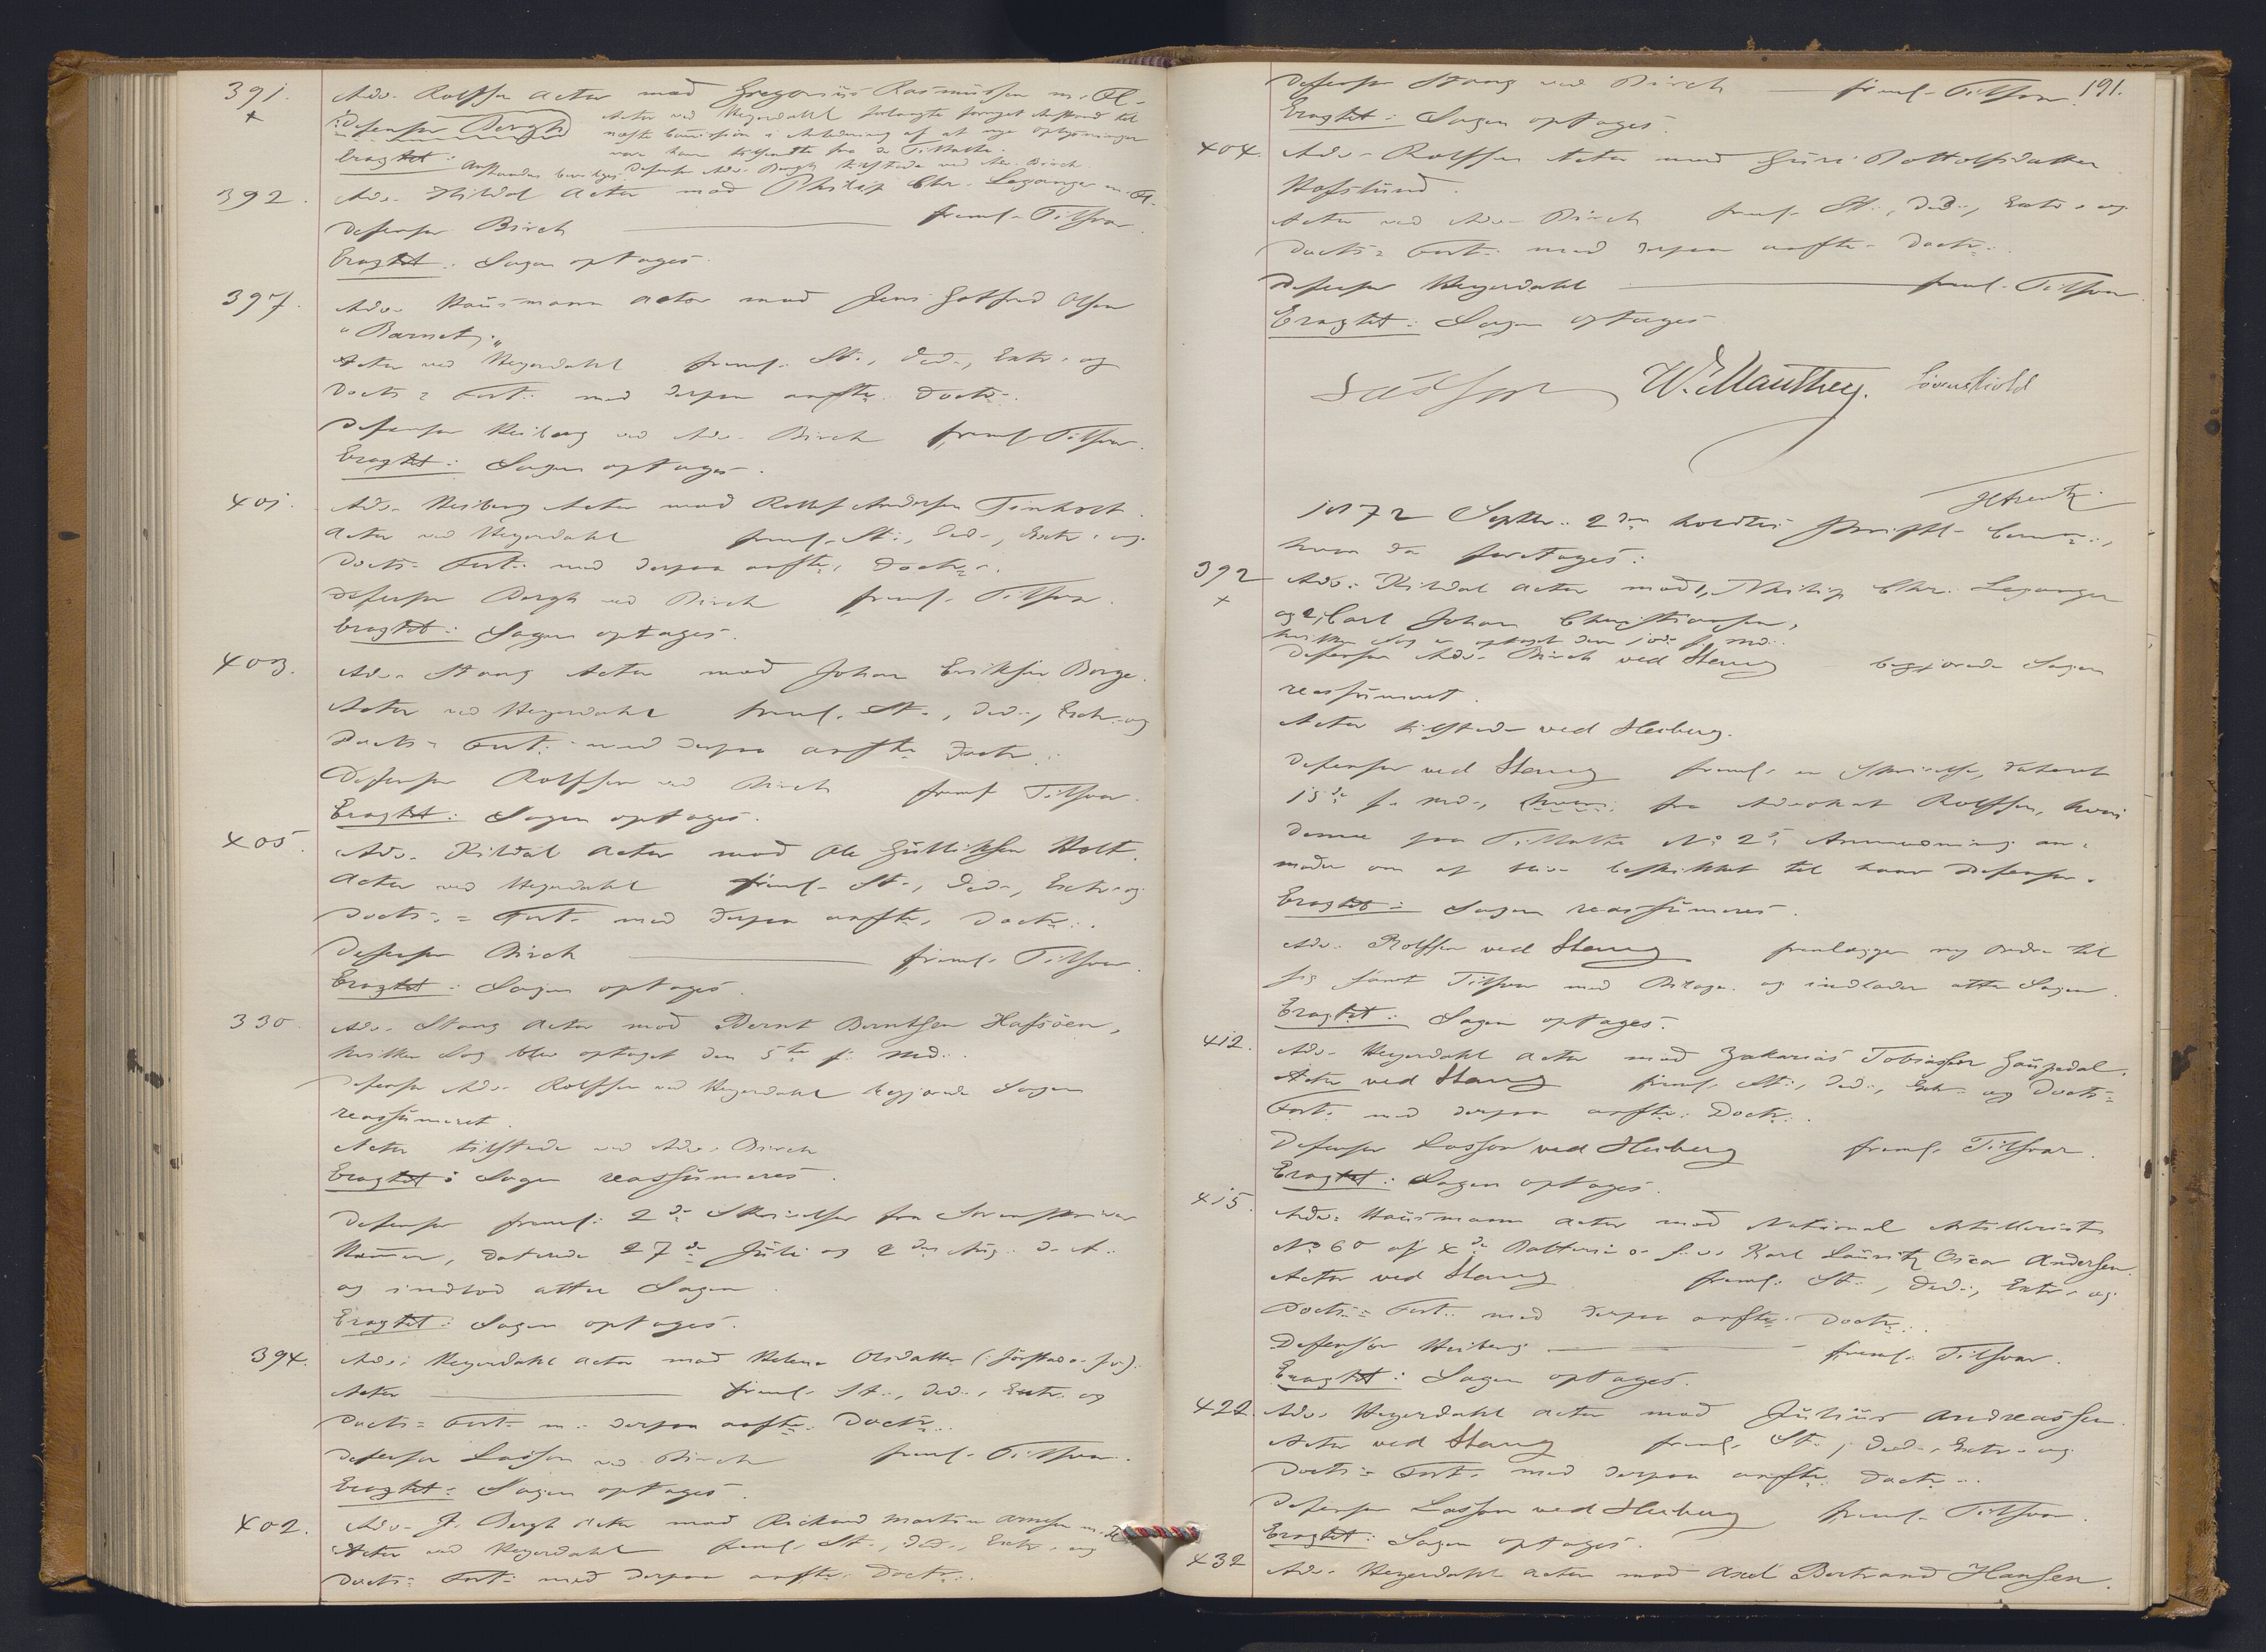 391. Adv. Rolfsen Actor mod Gregorius Rasmussen m. Fl.
+
Defensor Bergh
Actor ved Heyerdahl forlangte fornyet Anstand til
næste Session i Anledning af at nye Oplysninger
vare ham tilsendte fra de Tiltalte.
Eragtet: Anstanden bevilges. Defensor Adv. Bergh tilstede ved Adv. Birch.
392. Adv. Kildal Actor mod Philip Chr. Leganger m. Fl.
Defensor Birch freml. Tilsvar.
Eragtet: Sagen optages.
397. Adv. Hausmann Actor mod Jens Gotfred Olsen
"Barnet".
Actor ved Heyerdahl freml. St., Ded., Extr. og
Docts = Fort. med derpaa anfte. Doctr.
Defensor Heiberg ved Adv. Birch freml. Tilsvar.
Eragtet: Sagen optages.
401. Adv. Heiberg Actor mod Rolf Andersen Finholt.
Actor ved Heyerdahl freml. St., Ded., Extr. og
Docts = Fort. med derpaa anfte. Doctr.
Defensor Bergh ved Birch freml. Tilsvar.
Eragtet: Sagen optages.
403. Adv. Stang Actor mod Johan Eriksen Borge.
Actor ved Heyerdahl freml. St., Ded., Extr. og
Docts = Fort. med derpaa anfte Doctr.
Defensor Rolfsen ved Birch freml Tilsvar.
Eragtet: Sagen optages.
405. Adv. Kildal Actor mod Ole Gulliksen Holt.
Actor ved Heyerdahl freml. St., Ded., Extr. og
Docts = Fort. med derpaa anfte. Doctr.
Defensor Birch freml. Tilsvar.
Eragtet: Sagen optages.
330. Adv. Stang Actor mod Bernt Berntsen Hafsöen,
hvilken Sag blev optaget den 5te f. Md.
Defensor Adv. Rolfsen ved Heyerdahl begjærede Sagen
reassumeret.
Actor tilstede ved Adv. Birch
Eragtet: Sagen reassumeres.
Defensor freml. 2de Skrivelser fra
daterede 27de Juli og 2den Aug. d. A.
og indlod atter Sagen.
Eragtet: Sagen optages.
394. Adv. Heyerdahl Actor mod Helene Olsdatter
Actor freml. St., Ded., Extr. og
Docts = Fort. m. derpaa anfte. Doctr.
Defensor Lasson ved Birch freml. Tilsvar.
Eragtet: Sagen optages.
402. Adv. J. Bergh Actor mod Richard Martin Arnesen m. Fl.
Actor ved Heyerdahl freml. St., Ded., Extr. og
Docts = Fort. med derpaa anfte. Doctr.
191.
Defensor Stang ved Birch freml. Tilsvar.
Eragtet: Sagen optages.
404. Adv. Rolfsen Actor mod Guri Bottolfsdatter
Hofslund.
Actor ved Adv. Birch freml. St., Ded., Extr. og
Docts = Fort. med derpaa anfte. Doctr.
Defensor Heyerdahl freml. Tilsvar.
Eragtet: Sagen optages
W. Manthey. Løvenskiold
1872 Septbr. 2den holdtes
hvor da foretages:
392 Adv. Kildal Actor mod 1, Philip Chr. Leganger
+
og 2, Carl Johan Christiansen,
hvilken Sag er optaget den f. Md.
Defensor Adv. Birch ved Stang begjærede Sagen
reassumeret.
Actor tilstede ved Heiberg.
Defensor ved Stang freml. en Skrivelse, dateret
15de f. Md., fra Advokat Rolfsen, hvori
denne paa Tiltalte No 2s Anmodning an-
moder om at blive beskikket til hans Defensor.
Eragtet: Sagen reassumeres.
Adv. Rolfsen ved Stang fremlægger ny Ordre til
sig samt Tilsvar med Bilage. og indlader atter Sagen.
Eragtet: Sagen optages.
412. Adv. Heyerdahl Actor mod Zakarias Tobiassen Gaupedal.
Actor ved Stang freml. St., Ded., Extr. og Docts =
Fort. med derpaa anfte. Doctr.
Defensor Lasson ved Heiberg freml. Tilsvar.
Eragtet: Sagen optages.
415. Adv. Hausmann Actor mod National Artillerist
No 60 af 4de Batteri o. s. v. Karl Lauritz Oscar Andersen.
Actor ved Stang freml. St., Ded., Extr. og
Docts = Fort. med derpaa anfte. Doctr.
Defensor Heiberg freml. Tilsvar.
Eragtet: Sagen optages.
422. Adv. Heyerdahl Actor mod Julius Andreassen.
Actor ved Stang freml. St., Ded., Extr. og
Docts = Fort. med derpaa anfte. Doctr.
Defensor Lasson ved Heiberg freml. Tilsvar.
Eragtet: Sagen optages.
432 Adv. Heyerdahl Actor mod Axel Bertrand Hansen.